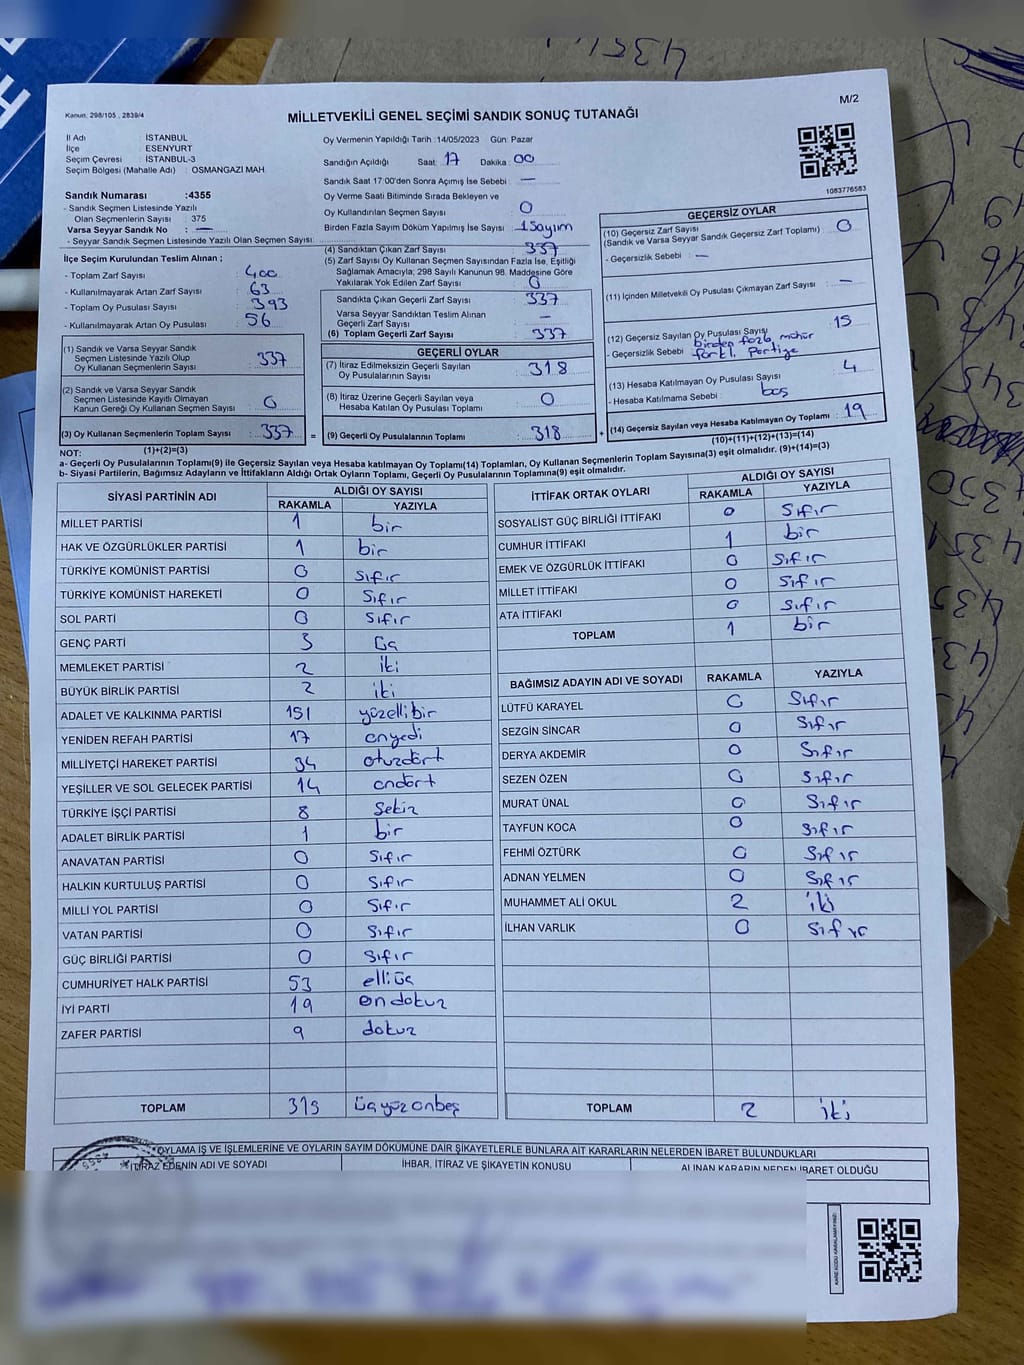 M/2
Kanun, 298/105 , 2839/4
MİLLETVEKİLİ GENEL SEÇİMİ SANDIK SONUÇ TUTANAĞI
İl Adı İSTANBUL
İlçe ESENYURT
Seçim Çevresi : İSTANBUL-3
Seçim Bölgesi (Mahalle Adı) : OSMANGAZI MAH
Sandık Numarası :4355
- Sandık Seçmen Listesinde Yazılı
Olan Seçmenlerin Sayısı : 375
Varsa Seyyar Sandık No : —
- Seyyar Sandık Seçmen Listesinde Yazılı Olan Seçmen Sayısı:
İlçe Seçim Kurulundan Teslim Alınan ;
- Toplam Zarf Sayısı : 400
- Kullanılmayarak Artan Zarf Sayısı : 63
- Toplam Oy Pusulası Sayısı : 393
- Kullanılmayarak Artan Oy Pusulası : 56
(1) Sandık ve Varsa Seyyar Sandık
Seçmen Listesinde Yazılı Olup
Oy Kullanan Seçmenlerin Sayısı : 337
(2) Sandık ve Varsa Seyyar Sandık
Seçmen Listesinde Kayıtlı Olmayan
Kanun Gereği Oy Kullanan Seçmen Sayısı : 0
(3) Oy Kullanan Seçmenlerin Toplam Sayısı : 337
Oy Vermenin Yapıldığı Tarih :14/05/2023 Gün: Pazar
Sandığın Açıldığı Saat: 17 Dakika: 00
Sandık Saat 17:00'den Sonra Açımış İse Sebebi : —
Oy Verme Saati Bitiminde Sırada Bekleyen ve
Oy Kullandırılan Seçmen Sayısı : 0
Birden Fazla Sayım Döküm Yapılmış İse Sayısı : 1 Sayım
(4) Sandıktan Çıkan Zarf Sayısı : 337
(5) Zarf Sayısı Oy Kullanan Seçmen Sayısından Fazla İse, Eşitliği
Sağlamak Amacıyla; 298 Sayılı Kanunun 98. Maddesine Göre
Yakılarak Yok Edilen Zarf Sayısı : 0
Sandıkta Çıkan Geçerli Zarf Sayısı : 337
Varsa Seyyar Sandıktan Teslim Alınan
Geçerli Zarf Sayısı : —
(6) Toplam Geçerli Zarf Sayısı : 337
GEÇERLİ OYLAR
(7) İtiraz Edilmeksizin Geçerli Sayılan
Oy Pusulalarının Sayısı : 318
(8) İtiraz Üzerine Geçerli Sayılan veya
Hesaba Katılan Oy Pusulası Toplamı : 0
= (9) Geçerli Oy Pusulalarının Toplamı : 318 +
1083776583
GEÇERSİZ OYLAR
(10) Geçersiz Zarf Sayısı : 0
(Sandık ve Varsa Seyyar Sandık Geçersiz Zarf Toplamı)
- Geçersizlik Sebebi : —
(11) İçinden Milletvekili Oy Pusulası Çıkmayan Zarf Sayısı : —
(12) Geçersiz Sayılan Oy Pusulası Sayısı : 15
- Geçersizlik Sebebi : Birden fazla mühür
farklı Partiye
(13) Hesaba Katılmayan Oy Pusulası Sayısı : 4
- Hesaba Katılmama Sebebi : boş
(14) Geçersiz Sayılan veya Hesaba Katılmayan Oy Toplamı : 19
NOT: (1)+(2)=(3)
(10)+(11)+(12)+(13)=(14)
a- Geçerli Oy Pusulalarının Toplamı(9) ile Geçersiz Sayılan veya Hesaba katılmayan Oy Toplamı(14) Toplamları, Oy Kullanan Seçmenlerin Toplam Sayısına(3) eşit olmalıdır. (9)+(14)=(3)
b- Siyasi Partilerin, Bağımsız Adayların ve İttifakların Aldığı Ortak Oyların Toplamı, Geçerli Oy Pusulalarının Toplamına(9) eşit olmalıdır.
SİYASİ PARTİNİN ADI ALDIĞI OY SAYISI
RAKAMLA YAZIYLA
MİLLET PARTİSİ 1 bir
HAK VE ÖZGÜRLÜKLER PARTİSİ 1 bir
TÜRKİYE KOMÜNİST PARTİSİ 0 sıfır
TÜRKİYE KOMÜNİST HAREKETİ 0 sıfır
SOL PARTİ 0 sıfır
GENÇ PARTİ 3 üç
MEMLEKET PARTİSİ 2 iki
BÜYÜK BİRLİK PARTİSİ 2 iki
ADALET VE KALKINMA PARTİSİ 151 yüzellibir
YENİDEN REFAH PARTİSİ 17 onyedi
MİLLİYETÇİ HAREKET PARTİSİ 34 otuzdört
YEŞİLLER VE SOL GELECEK PARTİSİ 14 ondört
TÜRKİYE İŞÇİ PARTİSİ 8 sekiz
ADALET BİRLİK PARTİSİ 1 bir
ANAVATAN PARTİSİ 0 sıfır
HALKIN KURTULUŞ PARTİSİ 0 sıfır
MİLLİ YOL PARTİSİ 0 sıfır
VATAN PARTİSİ 0 sıfır
GÜÇ BİRLİĞİ PARTİSİ 0 sıfır
CUMHURİYET HALK PARTİSİ 53 elliüç
İYİ PARTİ 19 on dokuz
ZAFER PARTİSİ 9 dokuz
TOPLAM 315 üçyüzonbeş
İTTİFAK ORTAK OYLARI ALDIĞI OY SAYISI
RAKAMLA YAZIYLA
SOSYALİST GÜÇ BİRLİĞİ İTTİFAKI 0 sıfır
CUMHUR İTTİFAKI 1 bir
EMEK VE ÖZGÜRLÜK İTTİFAKI 0 sıfır
MİLLET İTTİFAKI 0 sıfır
ATA İTTİFAKI 0 sıfır
TOPLAM 1 bir
BAĞIMSIZ ADAYIN ADI VE SOYADI RAKAMLA YAZIYLA
LÜTFÜ KARAYEL 0 sıfır
SEZGİN SİNCAR 0 sıfır
DERYA AKDEMİR 0 sıfır
SEZEN ÖZEN 0 sıfır
MURAT ÜNAL 0 sıfır
TAYFUN KOCA 0 sıfır
FEHMİ ÖZTÜRK 0 sıfır
ADNAN YELMEN 0 sıfır
MUHAMMET ALİ OKUL 2 iki
İLHAN VARLIK 0 sıfır
TOPLAM 2 iki
OYLAMA İŞ VE İŞLEMLERİNE VE OYLARIN SAYIM DÖKÜMÜNE DAİR ŞİKAYETLERLE BUNLARA AİT KARARLARIN NELERDEN İBARET BULUNDUKLARI
İTİRAZ EDENİN ADI VE SOYADI İHBAR, İTİRAZ VE ŞİKAYETİN KONUSU ALINAN KARARIN NEDEN İBARET OLDUĞU